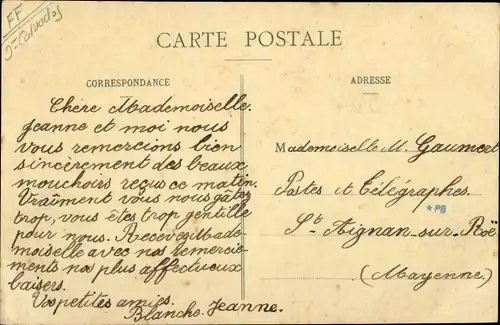 FF
Dt Calvados
CARTE POSTALE
CORRESPONDANCE
Chère Mademoiselle.
Jeanne et moi nous
vous remercions bien
sincèrement des beaux
mouchoirs reçus ce matin.
Vraiment vous nous gatez
trop, vous êtes trop gentille
pour nous. Recevez Made
moiselle avec nos remercie-
ments nos plus affectueux
baisers.
Vos petites amies.
Blanche. Jeanne.
ADRESSE
Mademoiselle M. Gaumert
Postes et Télégraphes.
*PB
St Aignan-sur-Roë
(Mayenne)